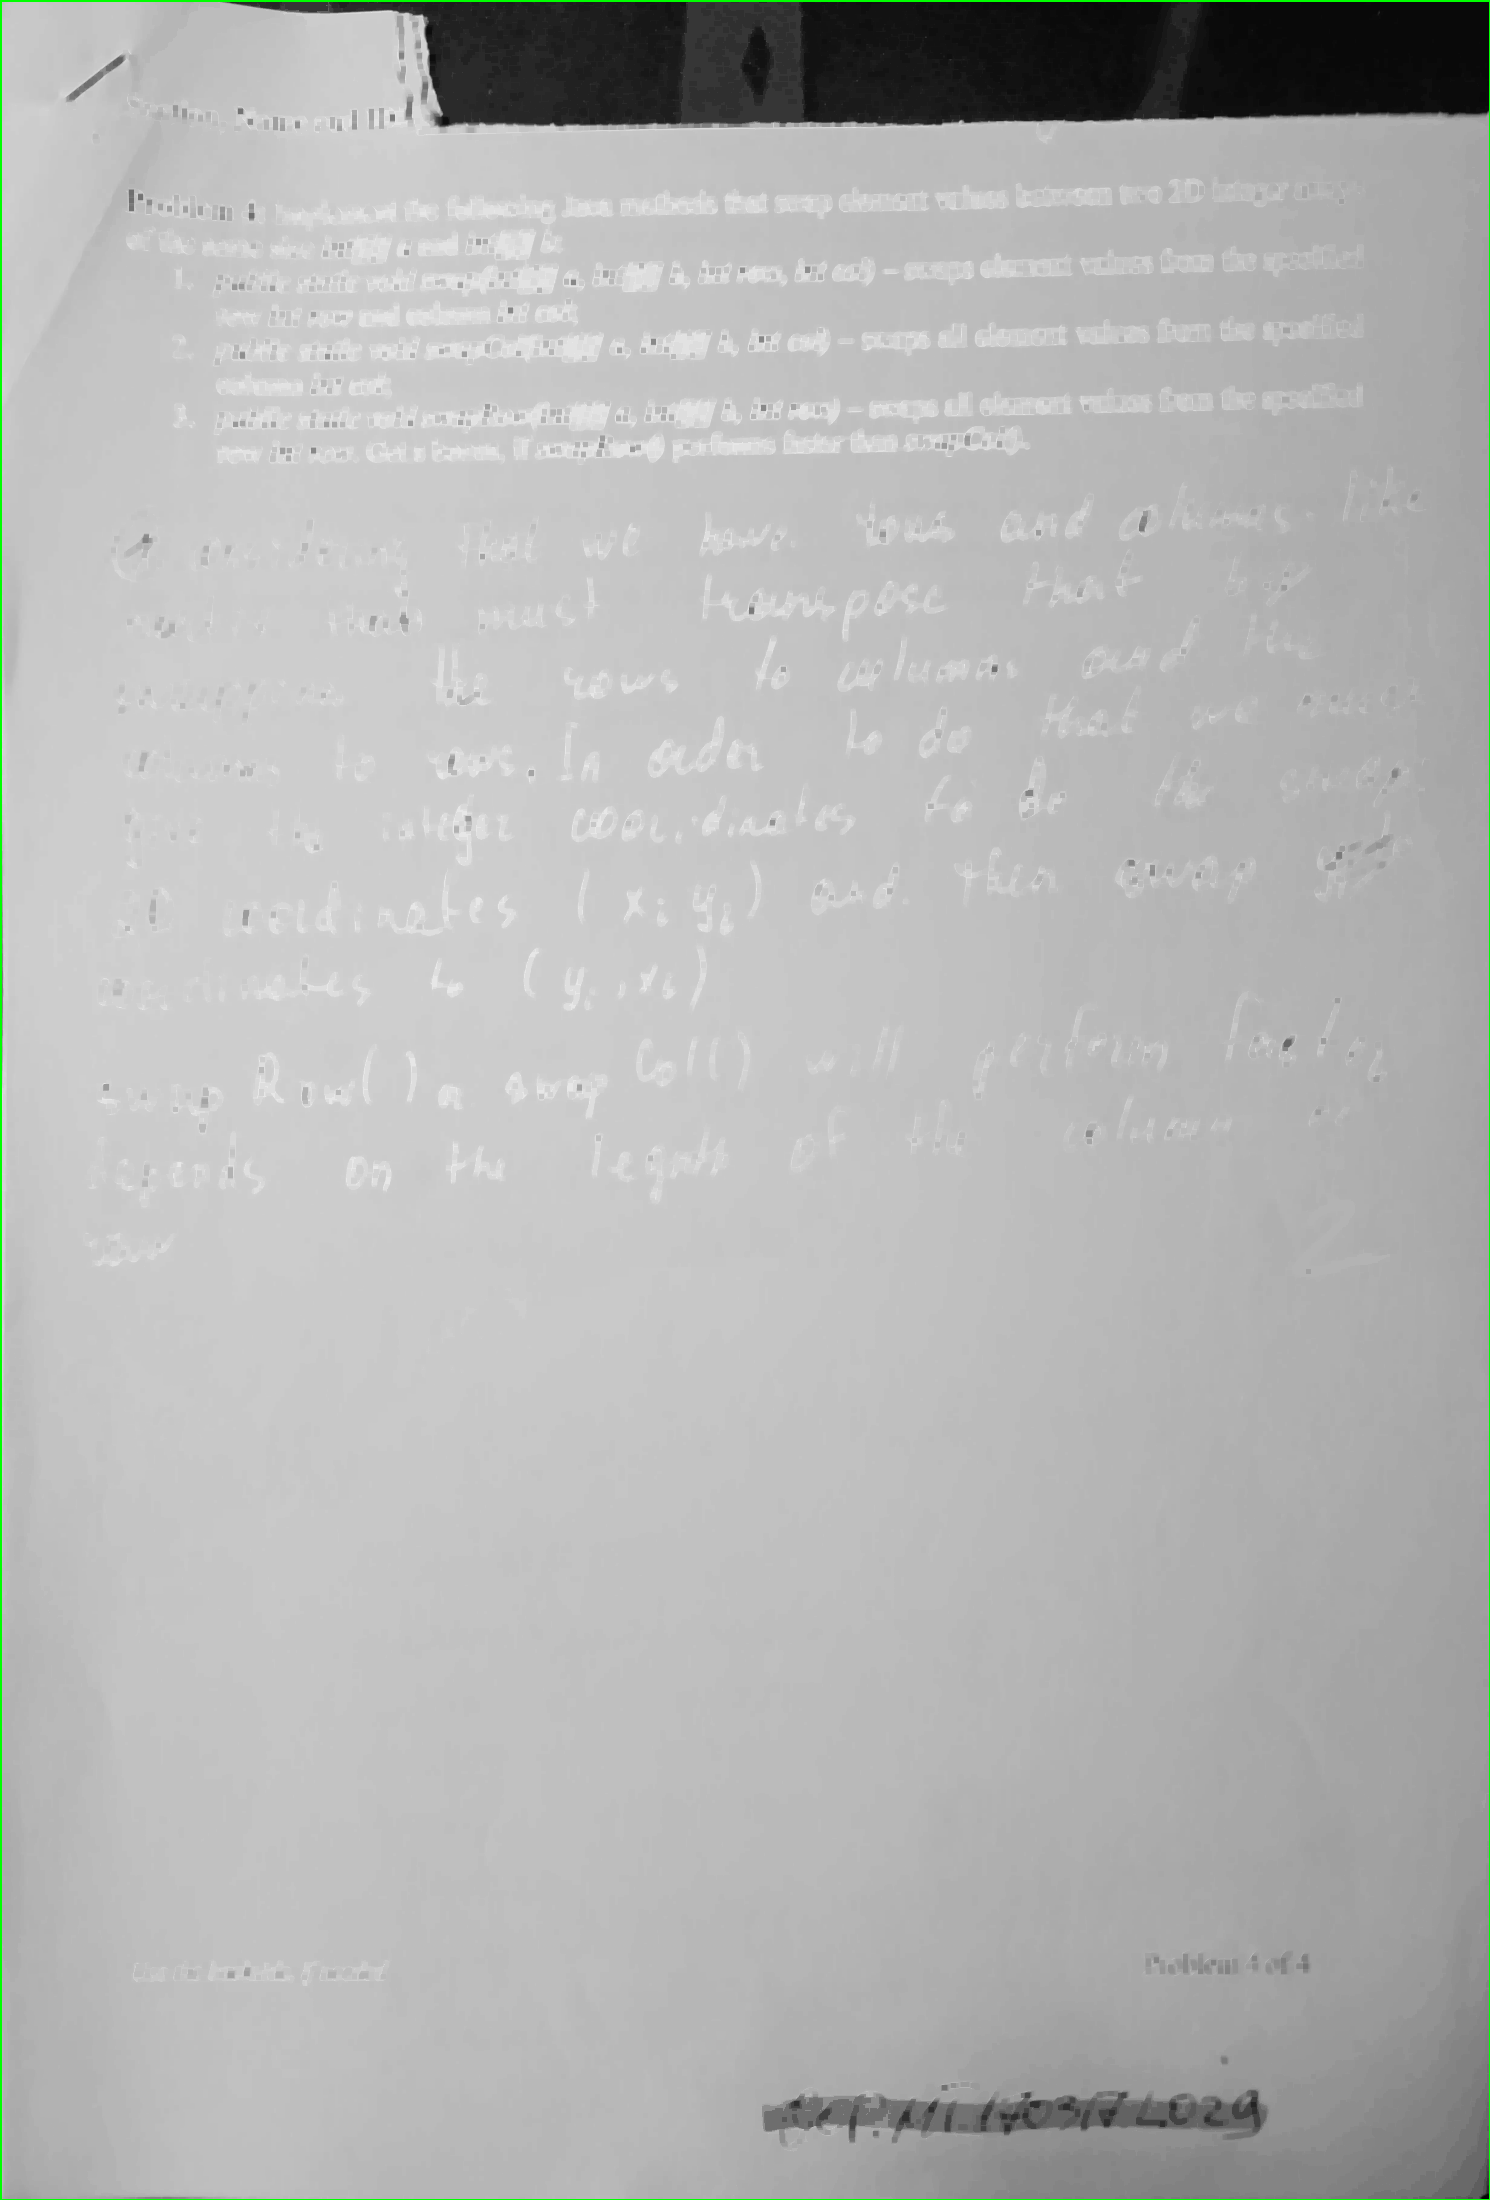 Problem 4. Implement the following Java methods that swap element values between two 2D integer arrays
of the same size int[][] a and int[][] b:
1. public static void swap(int[][] a, int[][] b, int row, int col) – swaps element values from the specified
row int row and column int col;
2. public static void swapCol(int[][] a, int[][] b, int col) – swaps all element values from the specified
column int col;
3. public static void swapRow(int[][] a, int[][] b, int row) – swaps all element values from the specified
row int row. Get a bonus, if swapRow() performs faster than swapCol().
Considering that we have rows and columns like
must transpose that by
the rows to columns and the
columns to rows. In order to do that we must
the integer coordinates to do the swap
2D coordinates (xi yi) and then swap
coordinates to (yi, xi)
swap Row() or swap Col() will perform faster
depends on the legnth of the column or
row
2
Problem 4 of 4